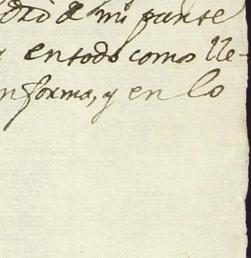 de mi parte
en todo como lle-
en forma, y en lo